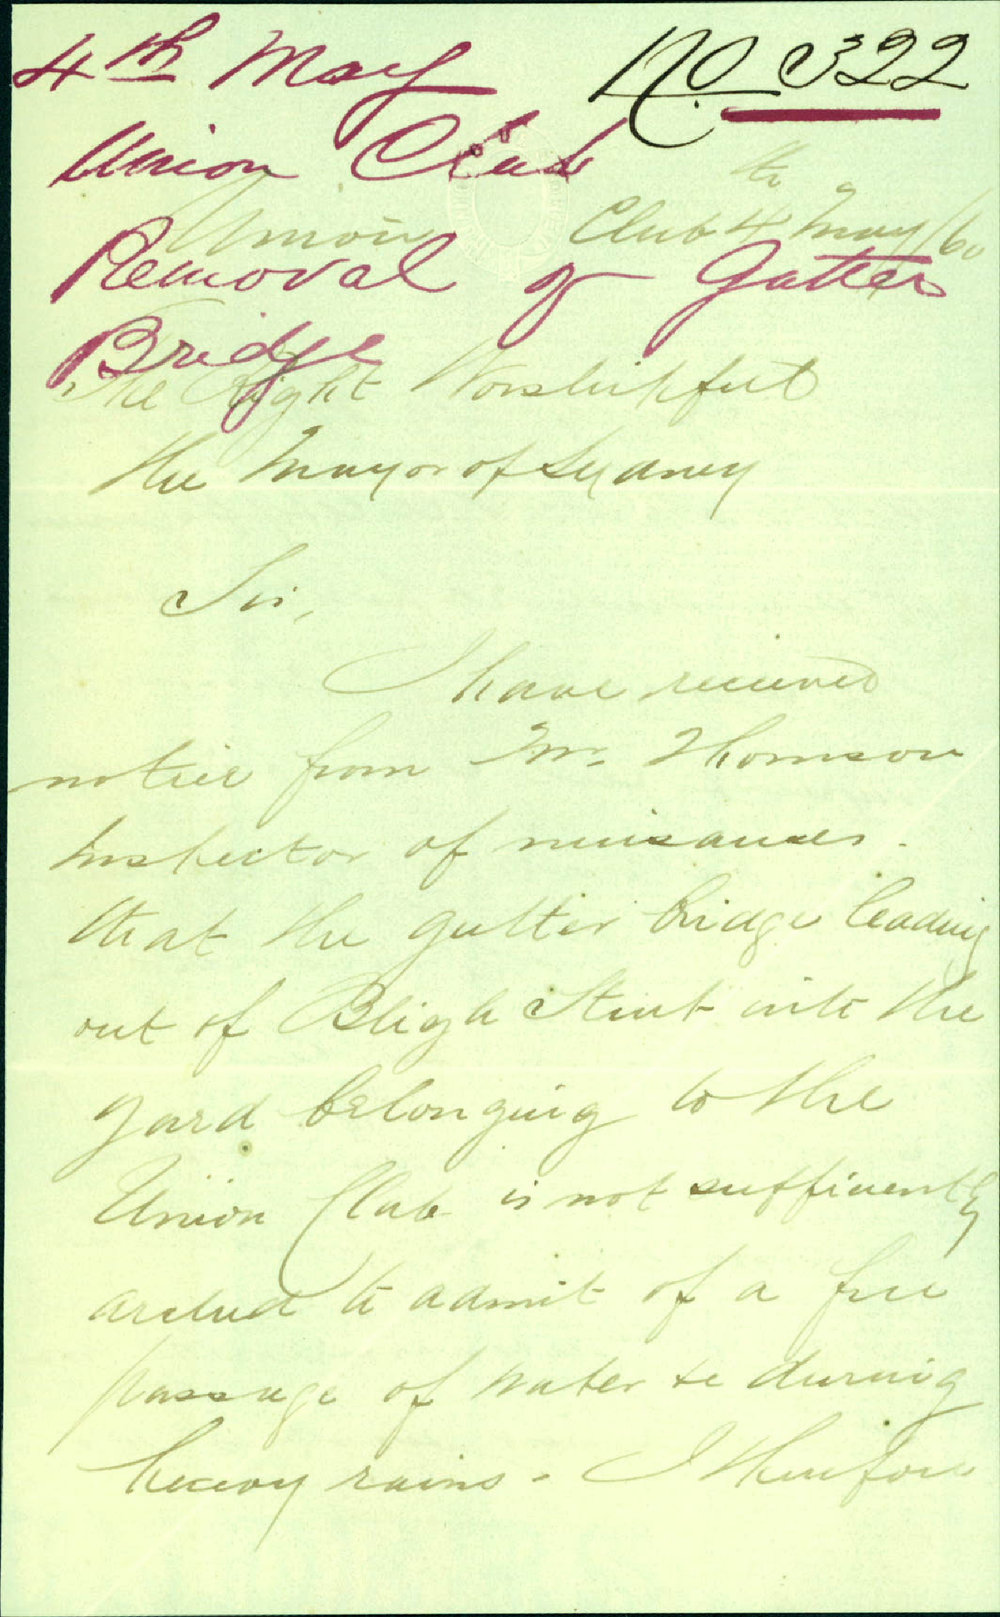 4th May No 322
Union Club
Union Club 4th May/60
Removal of Gutter
Bridge
The Right Worshipful
the Mayor of Sydney
Sir,
I have received
notice from Mr. Thomson
Inspector of nuisances.
that the gutter bridge leading
out of Bligh Street into the
yard belonging to the
Union Club is not sufficiently
arched to admit of a free
passage of water &c during
heavy rains - I therefore